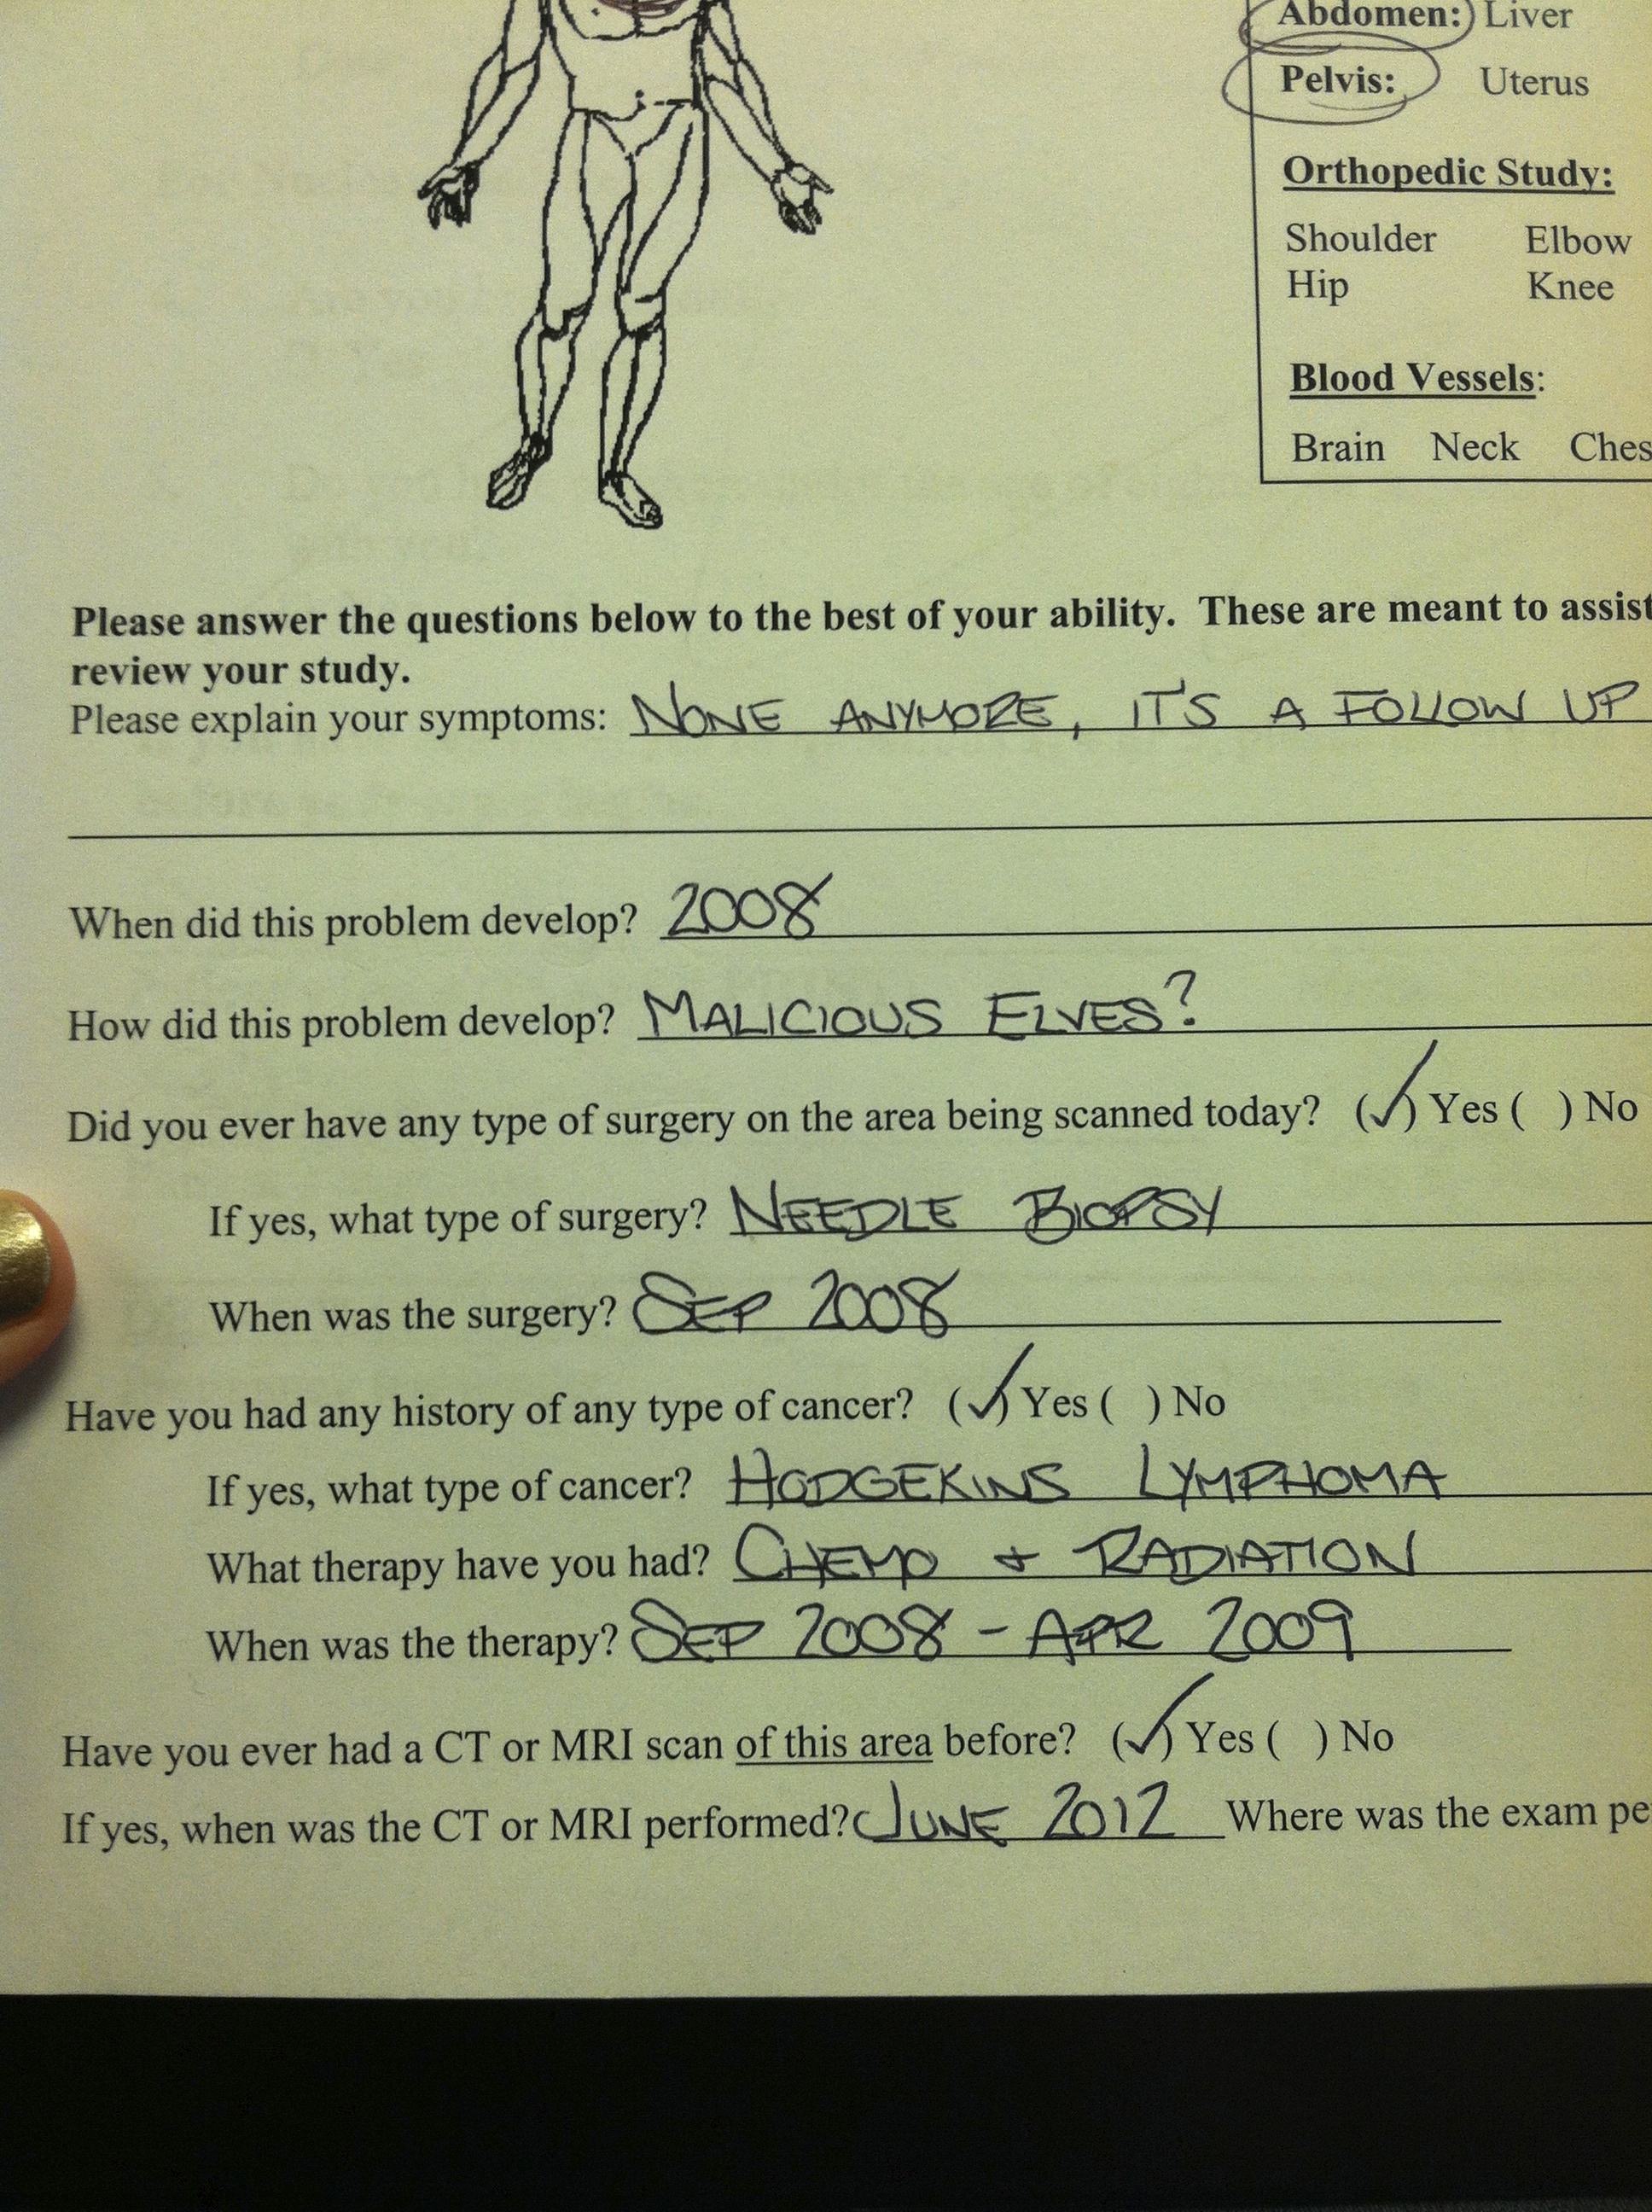 Abdomen: Liver
Pelvis: Uterus
Orthopedic Study:
Shoulder Elbow
Hip Knee
Blood Vessels:
Brain Neck Ches
Please answer the questions below to the best of your ability. These are meant to assist
review your study.
Please explain your symptoms: NONE ANYMORE, IT'S A FOLLOW UP
When did this problem develop? 2008
How did this problem develop? MALICIOUS ELVES?
Did you ever have any type of surgery on the area being scanned today? (✓) Yes ( ) No
If yes, what type of surgery? NEEDLE BIOPSY
When was the surgery? SEP 2008
Have you had any history of any type of cancer? (✓) Yes ( ) No
If yes, what type of cancer? HODGEKINS LYMPHOMA
What therapy have you had? CHEMO + RADIATION
When was the therapy? SEP 2008 - APR 2009
Have you ever had a CT or MRI scan of this area before? (✓) Yes ( ) No
If yes, when was the CT or MRI performed? JUNE 2012 Where was the exam pe